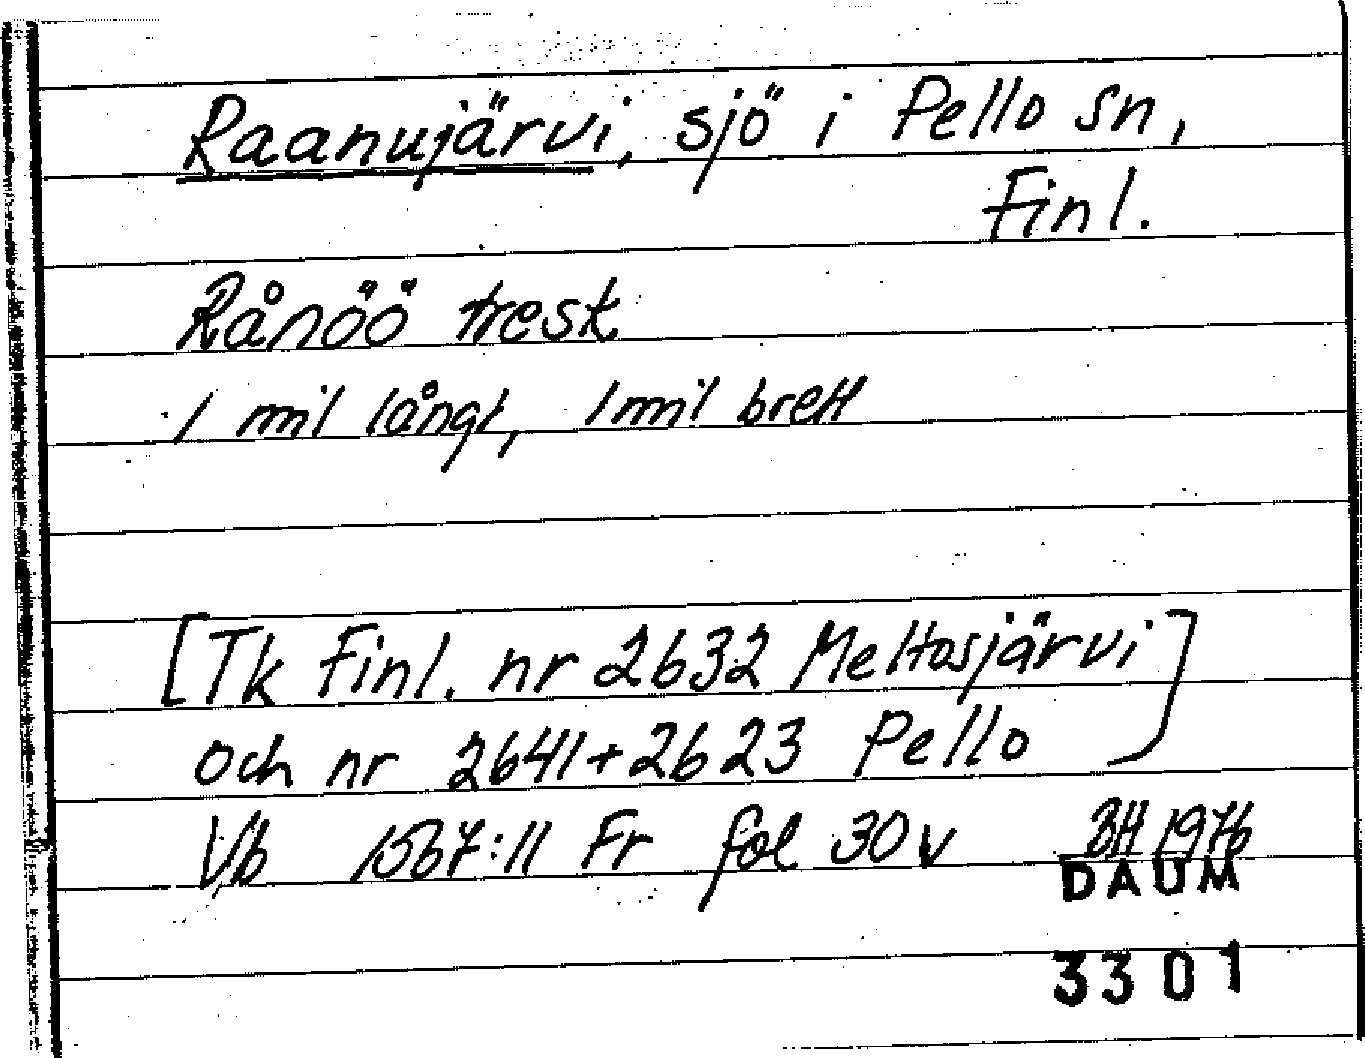 Raanujärvi, sjö i Pello sn,
Finl.
Rånöö tresk
1 mil långt, 1 mil brett
[Tk Finl. nr 2632 Meltosjärvi
och nr 2641+2623 Pello]
Vb 1567:11 Fr fol 30v BH 1976
DAUM
3301